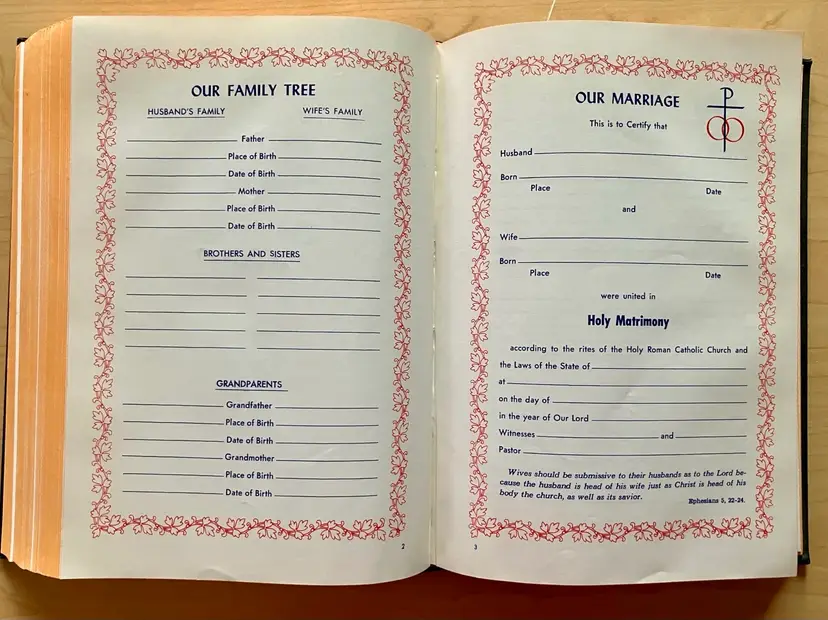 OUR FAMILY TREE
HUSBAND'S FAMILY WIFE'S FAMILY
Father
Place of Birth
Date of Birth
Mother
Place of Birth
Date of Birth
BROTHERS AND SISTERS
GRANDPARENTS
Grandfather
Place of Birth
Date of Birth
Grandmother
Place of Birth
Date of Birth
2
OUR MARRIAGE
This is to Certify that
Husband
Born
Place Date
and
Wife
Born
Place Date
were united in
Holy Matrimony
according to the rites of the Holy Roman Catholic Church and
the Laws of the State of
at
on the day of
in the year of Our Lord
Witnesses and
Pastor
Wives should be submissive to their husbands as to the Lord be-
cause the husband is head of his wife just as Christ is head of his
body the church, as well as its savior.
Ephesians 5, 22-24.
3